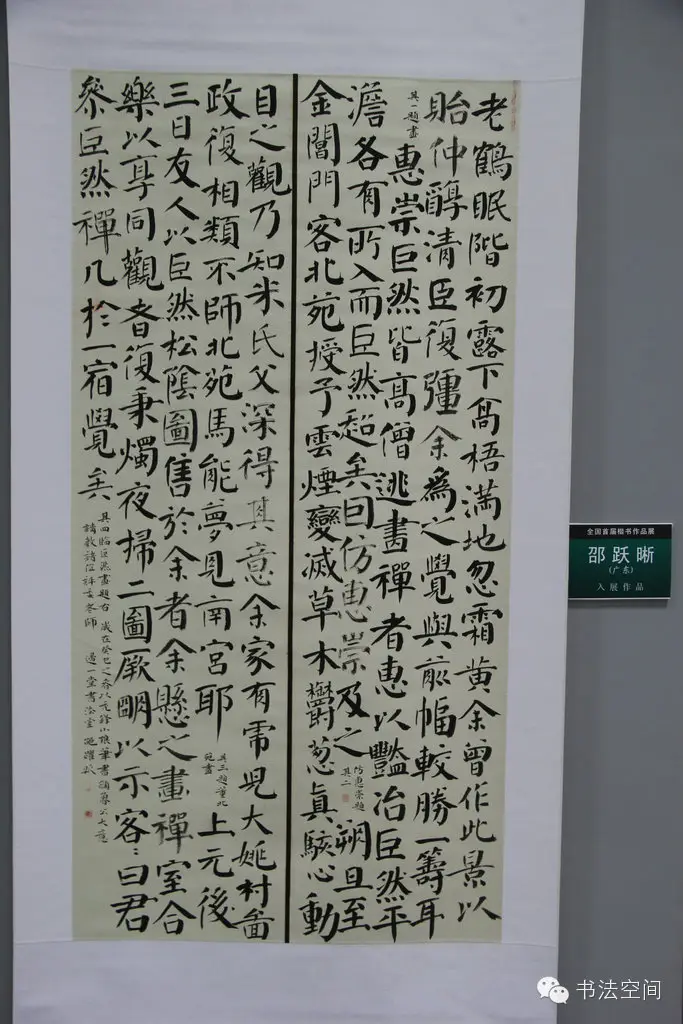 老鶴眠階初露下高梧滿地忽霜黃余曾作此景以
貽仲醇清臣復彊余為之覺與前幅較勝一籌耳
其一題畫 惠崇巨然皆高僧逃畫禪者惠以豔冶巨然平
澹各有所入而巨然超矣因仿惠崇及之 仿惠崇題其二 朔旦至
金閶門客北苑授予雲煙變滅草木鬱蔥真駭心動
目之觀乃知米氏父深得其意余家有虎兒大姚村啚
政復相類不師北苑焉能夢見南宮耶 其三題董北苑畫 上元後
三日友人以巨然松陰圖售於余者余懸之畫禪室合
樂以享同觀者復秉燭夜掃二圖厥明以示客〻曰君
參巨然禪几於一宿覺矣 其四臨巨然畫題右 歲在癸巳之春
全国首届楷书作品展
邵跃晰
(广东)
入展作品
书法空间